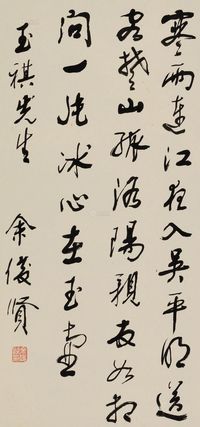 寒雨連江夜入吳平明送
客楚山孤洛陽親友如相
問一片冰心在玉壺
玉祺先生 余俊賢